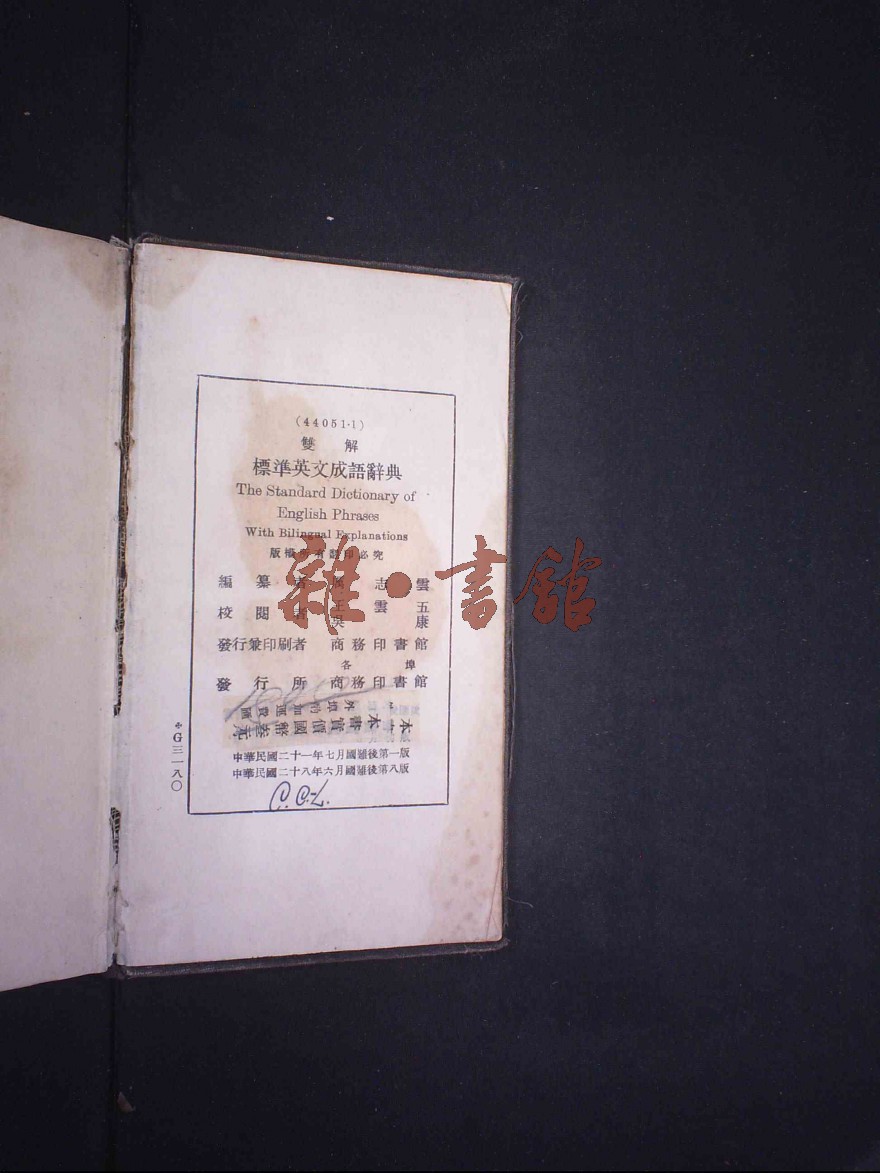 (44051·1)
雙解
標準英文成語辭典
The Standard Dictionary of
English Phrases
With Bilingual Explanations
版權所有翻印必究
編纂者 志雲
校閱者 王雲五
吳康
發行兼印刷者 商務印書館
各埠
發行所 商務印書館
本書實價國幣叁元
外埠酌加運費匯
中華民國二十一年七月國難後第一版
中華民國二十八年六月國難後第八版
＊G三一八〇
雜·書館